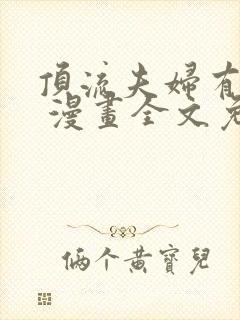 頂流夫婦有
漫畫全文免
俩个黄寶兒